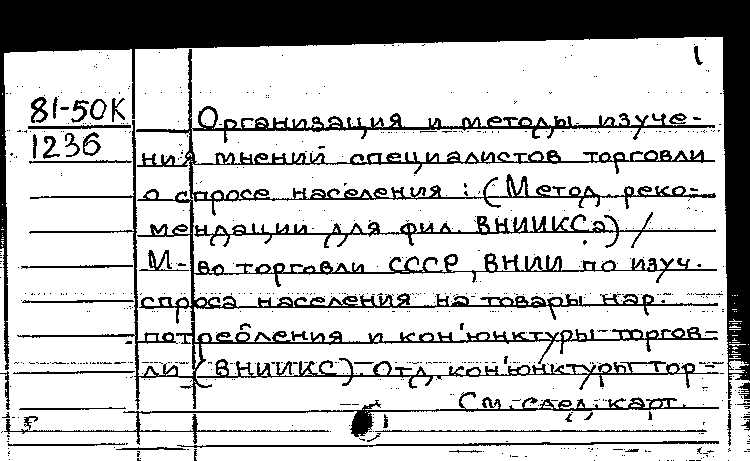 1
81-50К
1236
Организация и методы изуче-
ния мнений специалистов торговли
о спросе населения : (Метод. реко-
мендации для фил. ВНИИКСа) /
М-во торговли СССР, ВНИИ по изуч.
спроса населения на товары нар.
потребления и кон'юнктуры торгов-
ли (ВНИИКС). Отд. кон'юнктуры тор-
См. след. карт.